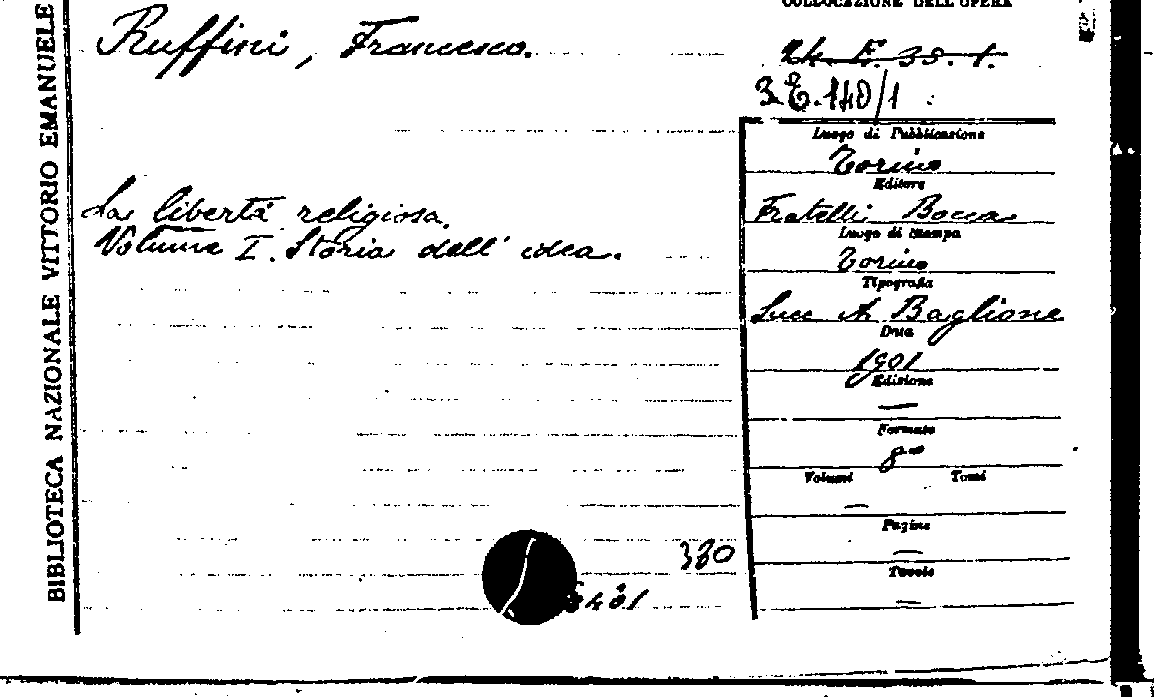 COLLOCAZIONE DELL'OPERA
Ruffini, Francesco.
24. E. 35. 1.
3.E.140/1
BIBLIOTECA NAZIONALE VITTORIO EMANUELE
La libertà religiosa.
Volume I. Storia dell' idea.
Luogo di Pubblicazione
Torino
Editore
Fratelli Bocca
Luogo di Stampa
Torino
Tipografia
Baglione
Data
1901
Edizione
—
Formato
8°
Volumi Tomi
—
Pagine
—
Tavole
—
380